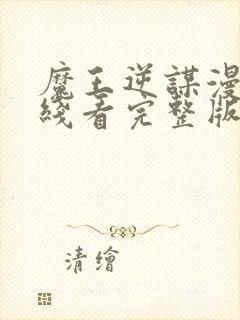 魔王逆謀漫
綫看完整版
清繪